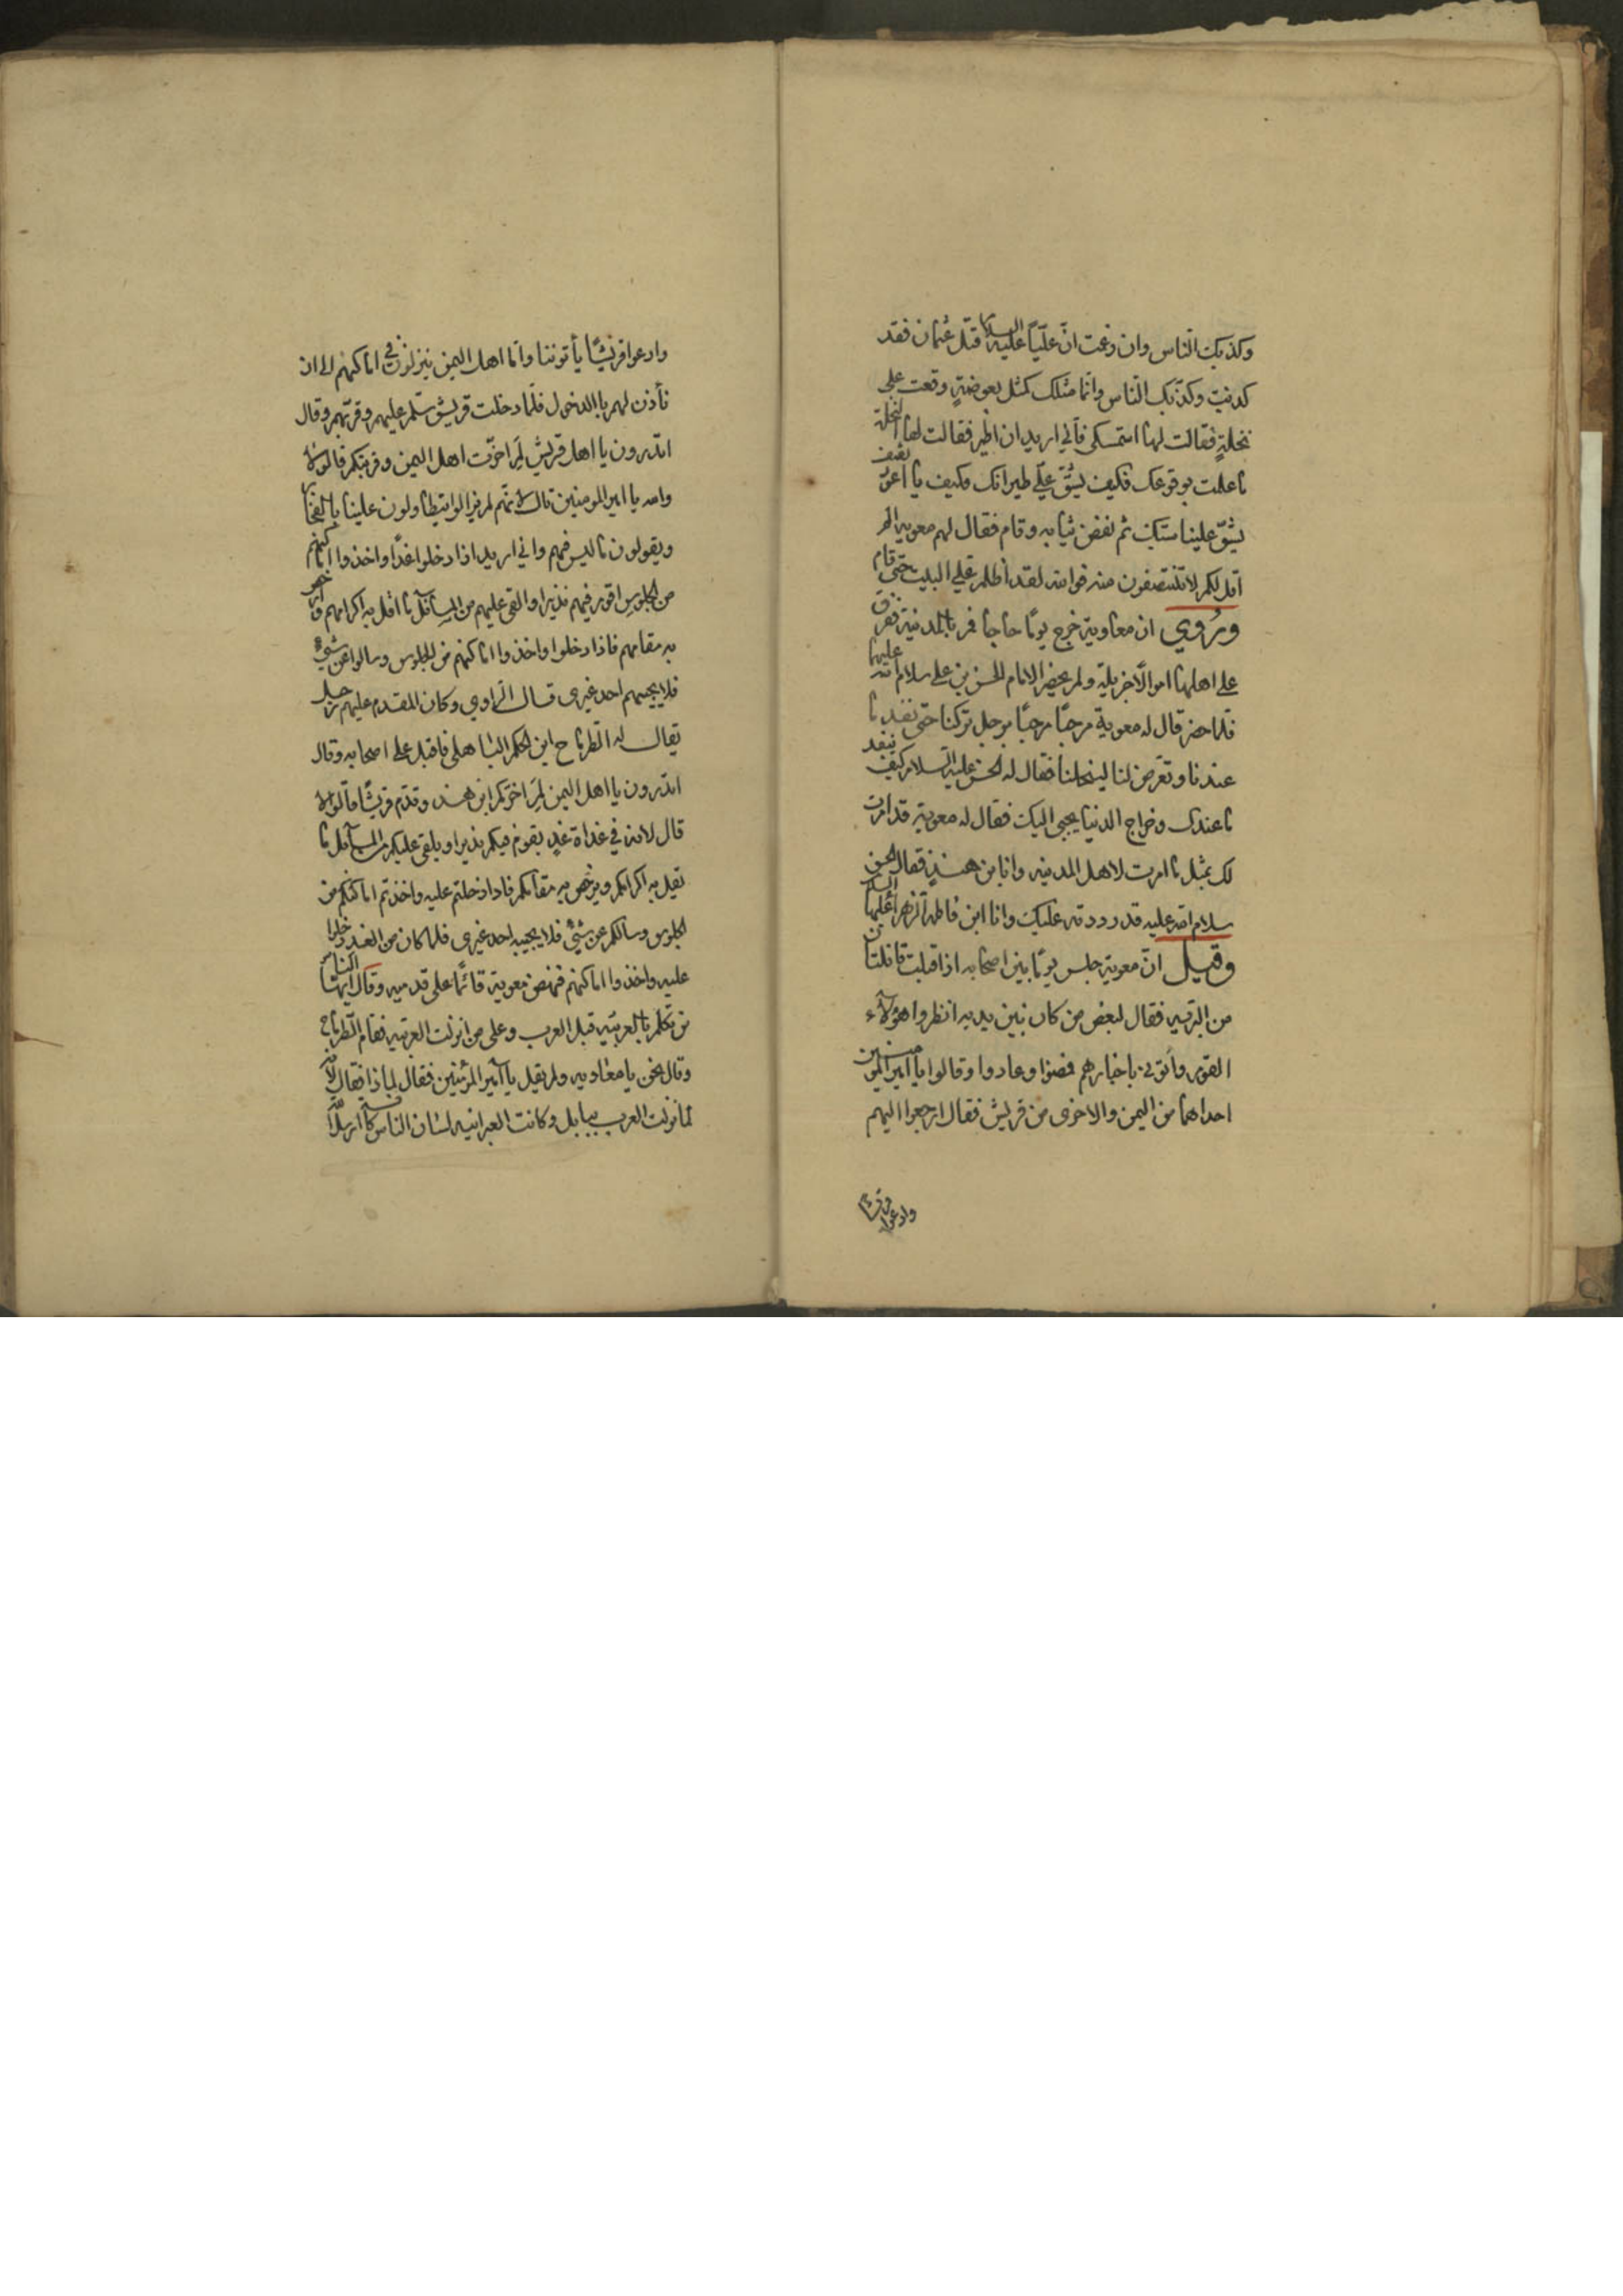 وكذبك الناس وان زعمت انّ عليّاً عليه السلام قتل عثمان فقد
كذبت وكذّبك الناس وانما مثلك كمثل بعوضةٍ وقعت على
نخلةٍ فقالت لها استمسكي فاني اريد ان اطير فقالت لها النخلة
ما علمت بوقوعك فكيف يشقّ عليّ طيرانك وكيف يا اعور ثقيف
يشقّ علينا سبّك ثم نفض ثيابه وقام فقال لهم معوية الم
اقل لكم لا تنتصفون منه فوالله لقد اظلم عليّ البيت حتى قام
ورُوي ان معاوية خرج يومًا حاجا فمر بالمدينة ففرق
على اهلها اموالًا جزيلة ولم يحضر الامام الحسن بن علي سلام الله عليهما
فلما حضر قال له معوية مرحبًا مرحبًا برجل تركنا حتى نفد ما
عندنا وتعرض لنا ليبخلنا فقال له الحسن عليه السلام كيف ينفد
ما عندك وخراج الدنيا يجبى اليك فقال له معوية قد امرت
لك بمثل ما امرت لاهل المدينه وانا بن هندٍ فقال الحسن
سلام الله عليه قد رددته عليك وانا ابن فاطمة الزهرا عليها السلام
وقيل انّ معوية جلس يومًا بين اصحابه اذا قبلت قافلتان
من البرّيه فقال لبعض من كان بين يديه انظروا هؤلآء
القوم وأتوني باخبارهم فمضوا وعادوا وقالوا يا امير المومنين
احداهما من اليمن والاخرى من قريش فقال ارجعوا اليهم
وادعوا قريشًا
وادعوا قريشًا يأتوننا وامّا اهل اليمن ينزلون في اماكنهم الى ان
نأذن لهم بالدخول فلما دخلت قريش سلّم عليهم وقرّبهم وقال
اتدرون يا اهل قريش لِمَ اخرّت اهل اليمن وقربتكم قالوا لا
والله يا امير المومنين قال لانّهم لم يزالوا يتطاولون علينا بالفخار
ويقولون ما ليس فيهم واني اريد اذا دخلوا غدًا واخذوا اماكنهم
من الجلوس اقوم فيهم نذيرا والقي عليهم من المسآئل ما اقل به اكرامهم وارخص
به مقامهم فاذا دخلوا واخذوا اماكنهم من الجلوس وسالوا عن شيءٍ
فلا يجيبهم احد غيرى قال الرّاوي وكان المقدم عليهم رجل
يقال له الطرماح ابن الحكم الباهلى فاقبل على اصحابه وقال
اتدرون يا اهل اليمن لِمَ اخرّكم ابن هند وقدّم قريشًا قالوا لا
قال لانه في غداة غدٍ يقوم فيكم نذيرا ويلقى عليكم من المسآئل ما
يقل به اكرامكم ويرخص به مقامكم فاذا دخلتم عليه واخذتم اماكنكم من
الجلوس وسالكم عن شيءٍ فلا يجيبه احد غيرى فلما كان من الغد دخلوا
عليه واخذوا اماكنهم فنهض معوية قائمًا على قدميه وقال ايها الناس
من تكلم بالعربية قبل العرب وعلى من انزلت العربيه فقام الطرماح
وقال نحن يا معاويه ولم يقل يا امير المؤمنين فقال لماذا فقال لانه
لما نزلت العرب ببابل وكانت العبرانيه لسان الناس كافة ارسل الله